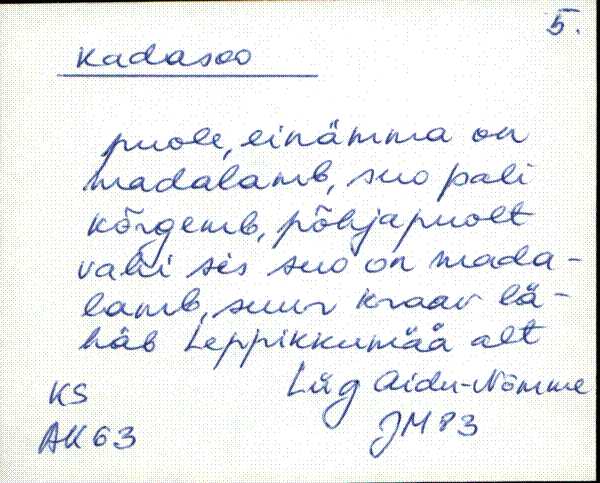 5.
Kadasoo
puole, einämma on
madalamb, suo pali
kõrgemb, põhjapuolt
vahi sis suo on mada-
lamb, suur kraav lä-
häb Leppikkumää alt
KS Lüg Aidu-Nõmme
AK 63 JM 83